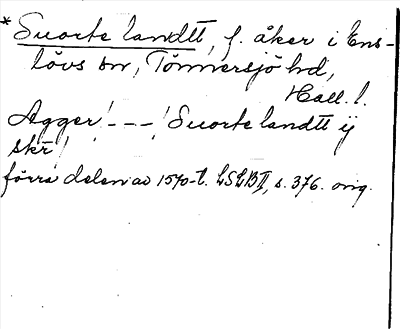 *Suorte landtt, f. åker i Ens-
lövs sn, Tönnersjö hd,
Hall. l.
Agger! - - -! Suorte landtt ij
skr!
förra delen av 1570-t. LSLB II, s. 376. orig.